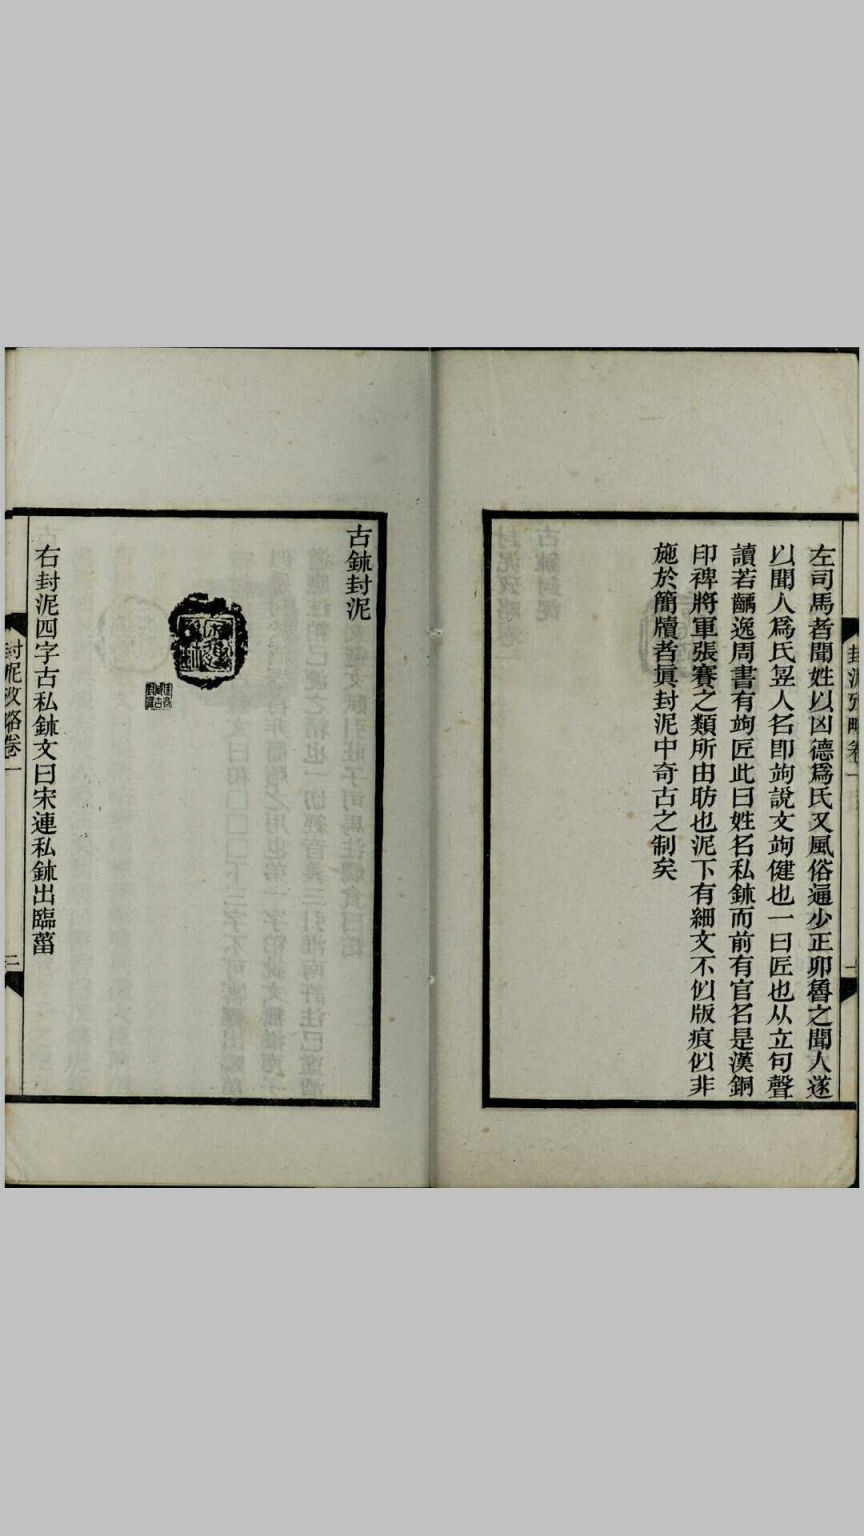 左司馬者聞姓以凶德爲氏又風俗通少正卯魯之聞人遂
以聞人爲氏昱人名卽竘說文竘健也一曰匠也从立句聲
讀若齲逸周書有竘匠此曰姓名私鉥而前有官名是漢銅
印裨將軍張賽之類所由昉也泥下有細文不似版痕似非
施於簡牘者眞封泥中奇古之制矣
古鉥封泥
右封泥四字古私鉥文曰宋連私鉥出臨菑
封泥攷略卷一
二